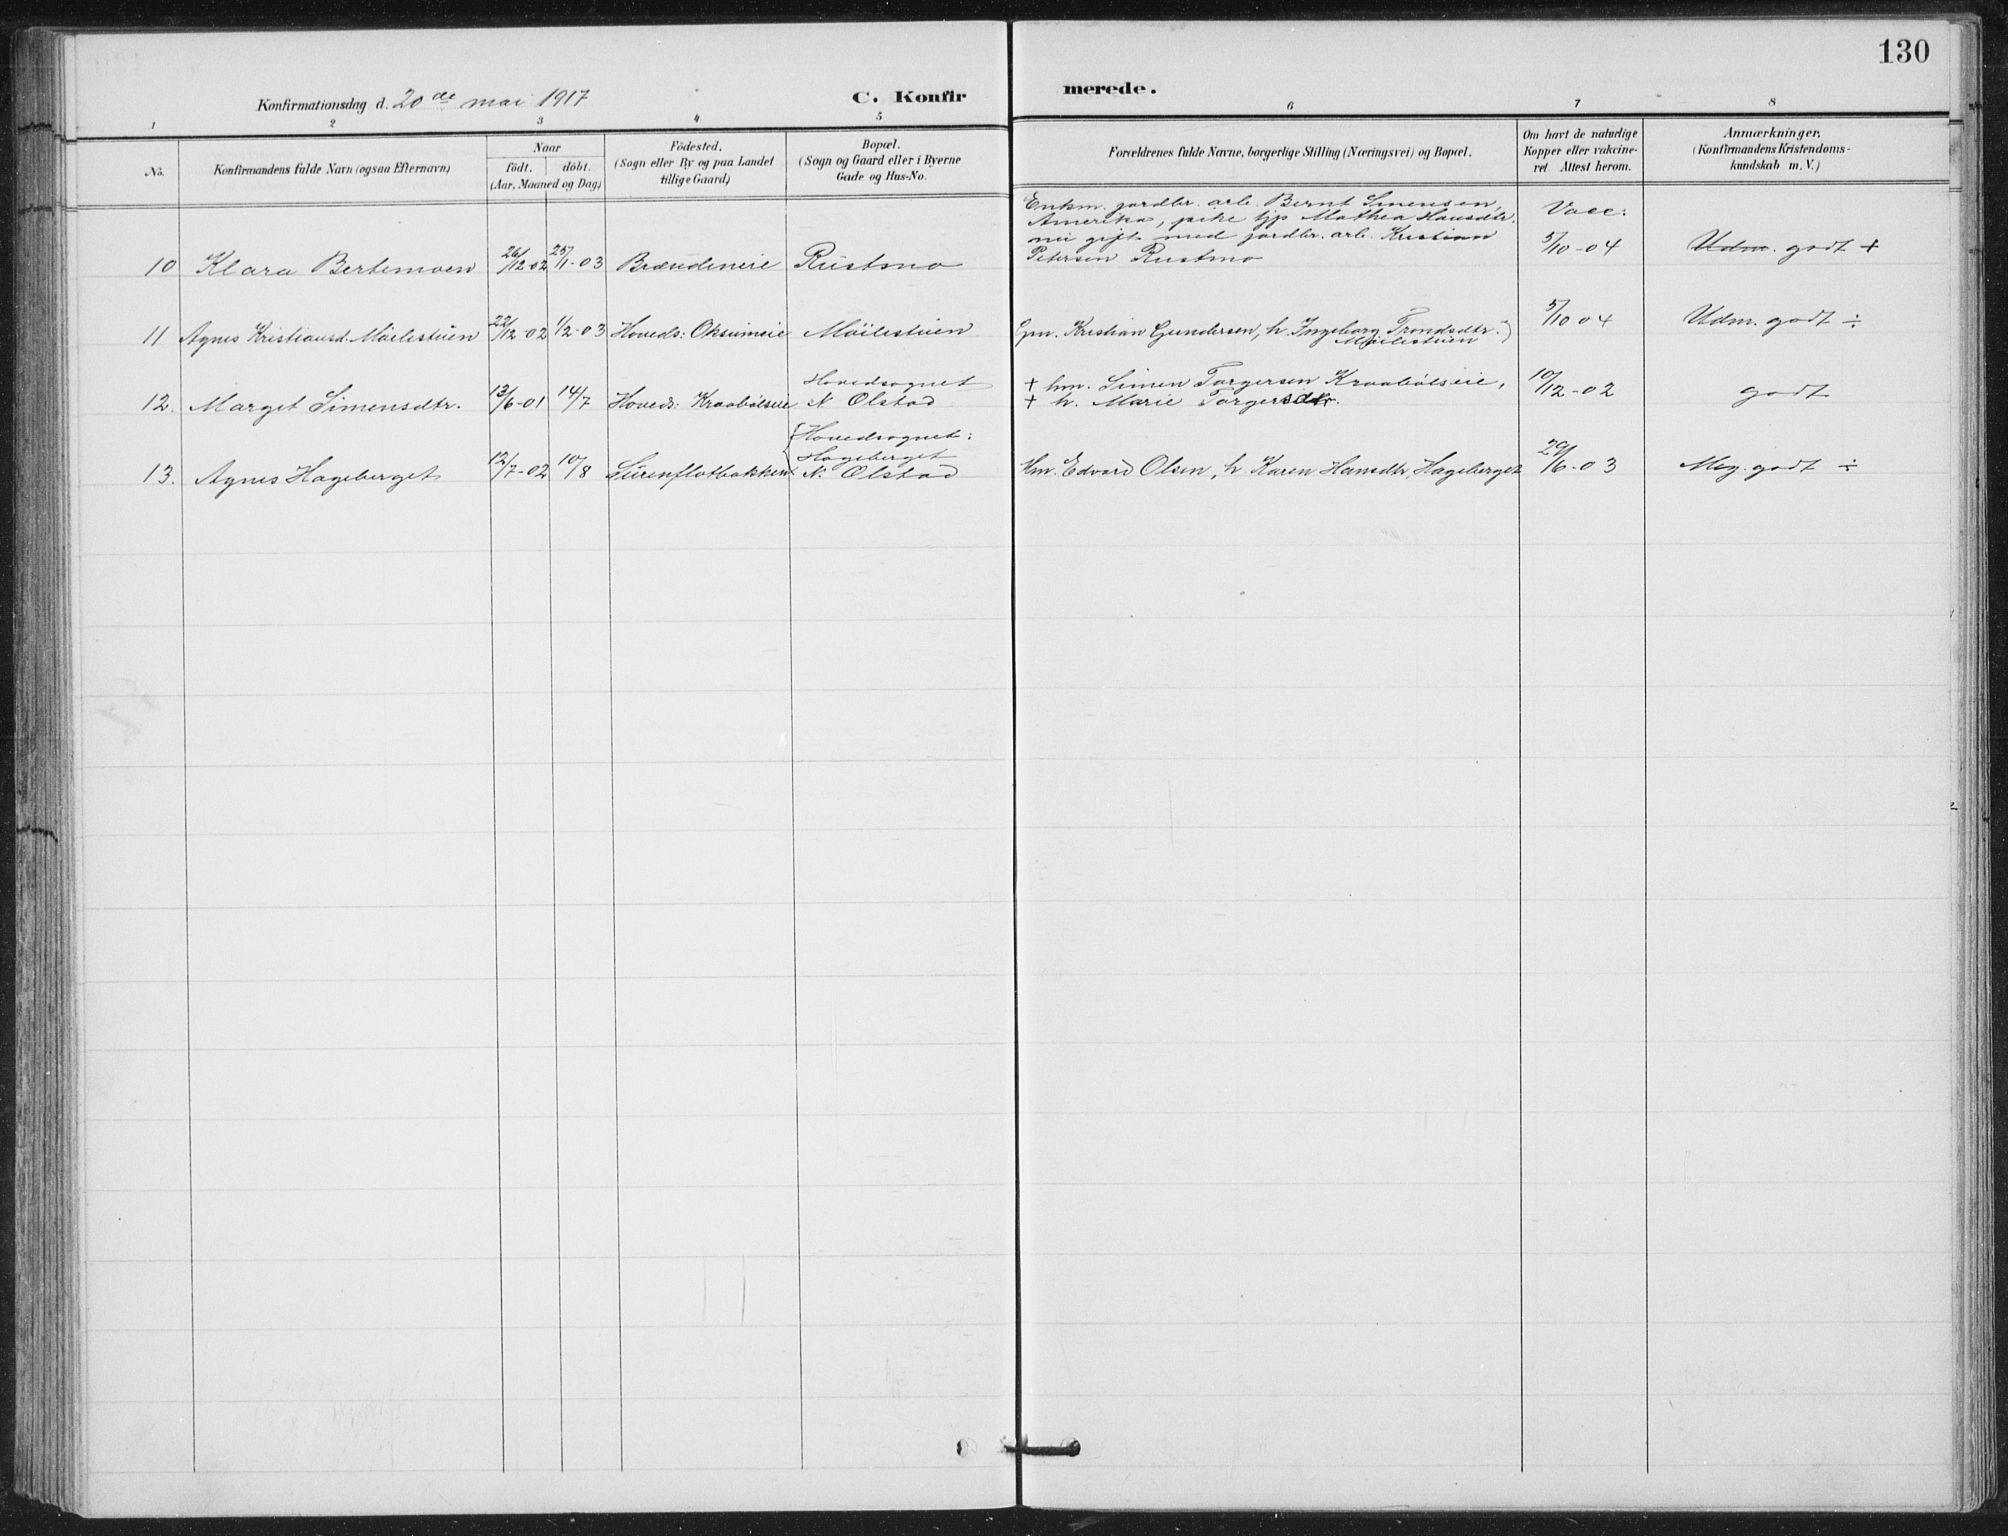 130
Konfirmationsdag d. 20de mai 1917
C. Konfirmerede.
1 2 3 4 5 6 7 8
No.
Konfirmandens fulde Navn (ogsaa Efternavn)
Naar
födt. döbt.
(Aar, Maaned og Dag)
Födested.
(Sogn eller By og paa Landet
tillige Gaard)
Bopæl.
(Sogn og Gaard eller i Byerne
Gade og Hus-No.
Forældrenes fulde Navne, borgerlige Stilling (Næringsvei) og Bopæl.
Om havt de naturlige
Kopper eller vakcine-
ret. Attest herom.
Anmærkninger.
(Konfirmandens Kristendoms-
kundskab m. V.)
Enkm. jordbr. arb. Bernt Simensen,
Amerika, pike tjp Mathea Hansdtr.
nu gift med jordbr. arb. Kristian
Petersen Rustmo
Vacc.
10 Klara Bertemoen 26/12 02 25/1-03 Brændeneie Rustmo 5/10-04 Udm. godt +
11 Agnes Kristiansd. Möilestuen 22/12-02 1/2-03 Hoveds: Oksumeie Möilestuen Gm. Kristian Gundersen, h. Ingeborg Trondsdtr.
Möilestuen
5/10 04 Udm. godt ÷
12. Marget Simensdtr. 13/6-01 14/7 Hoveds: Kraabölseie Hovedsognet
N. Olstad
+ hm. Simen Torgersen Kraabölseie,
+ h. Marie Torgersdtr.
10/12-02 godt
13. Agnes Hageberget 12/7-02 10/8 Lurenflatbakken Hovedsognet:
Hageberget
N. Olstad
Hm. Edvard Olsen, h. Karen Hansdtr. Hageberget 29/6-03 Meg. godt ÷